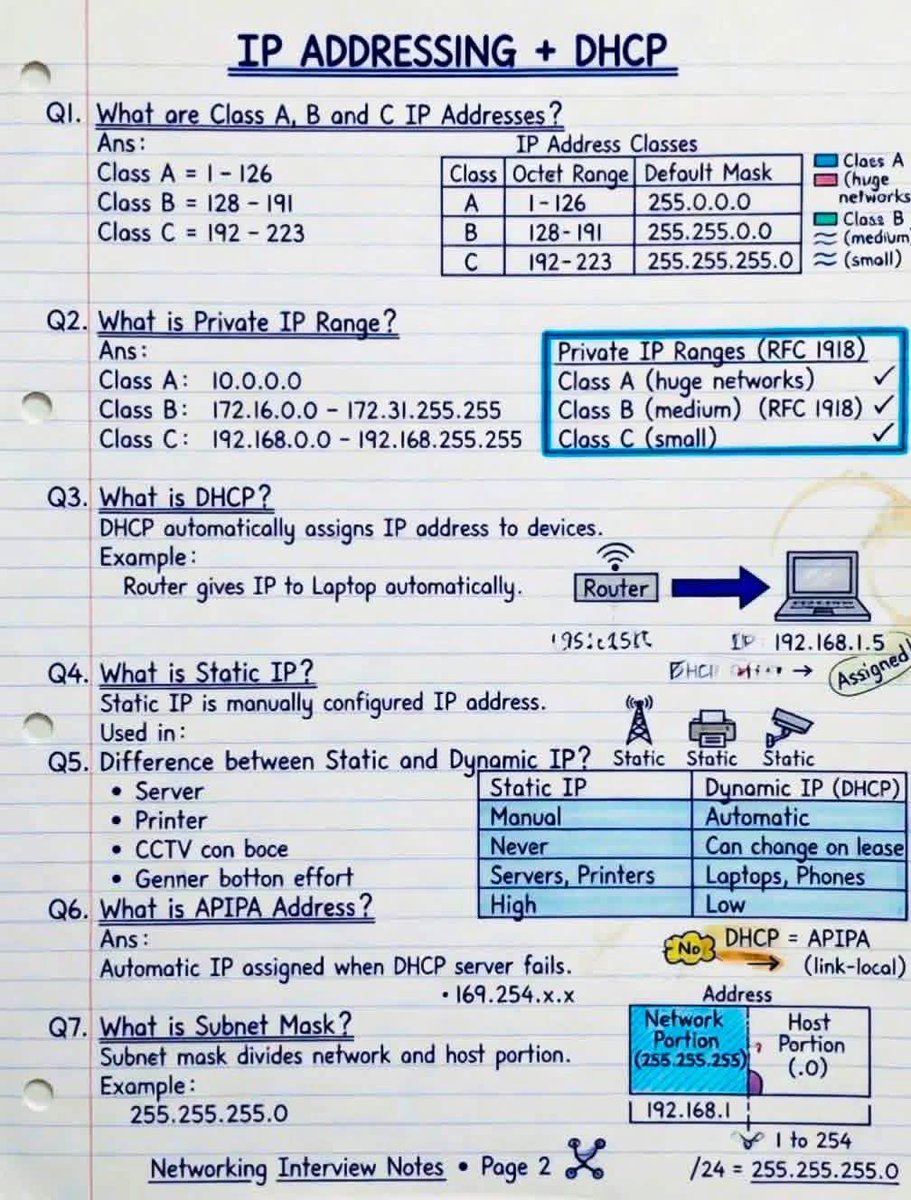 IP ADDRESSING + DHCP
Q1. What are Class A, B and C IP Addresses?
Ans:
Class A = 1 - 126
Class B = 128 - 191
Class C = 192 - 223
IP Address Classes
Class Octet Range Default Mask
A 1-126 255.0.0.0
B 128-191 255.255.0.0
C 192-223 255.255.255.0
Claes A
(huge
networks
Class B
(medium)
(small)
Q2. What is Private IP Range?
Ans:
Class A: 10.0.0.0
Class B: 172.16.0.0 - 172.31.255.255
Class C: 192.168.0.0 - 192.168.255.255
Private IP Ranges (RFC 1918)
Class A (huge networks) ✓
Class B (medium) (RFC 1918) ✓
Class C (small) ✓
Q3. What is DHCP?
DHCP automatically assigns IP address to devices.
Example:
Router gives IP to Laptop automatically.
Router
IP 192.168.1.5
→ Assigned!
Q4. What is Static IP?
Static IP is manually configured IP address.
Used in:
Static Static Static
Q5. Difference between Static and Dynamic IP?
• Server
• Printer
• CCTV con boce
• Genner botton effort
Static IP Dynamic IP (DHCP)
Manual Automatic
Never Can change on lease
Servers, Printers Laptops, Phones
High Low
Q6. What is APIPA Address?
Ans:
Automatic IP assigned when DHCP server fails.
• 169.254.x.x
No DHCP = APIPA
→ (link-local)
Q7. What is Subnet Mask?
Subnet mask divides network and host portion.
Example:
255.255.255.0
Address
Network
Portion
(255.255.255)
Host
Portion
(.0)
?
192.168.1
1 to 254
/24 = 255.255.255.0
Networking Interview Notes • Page 2